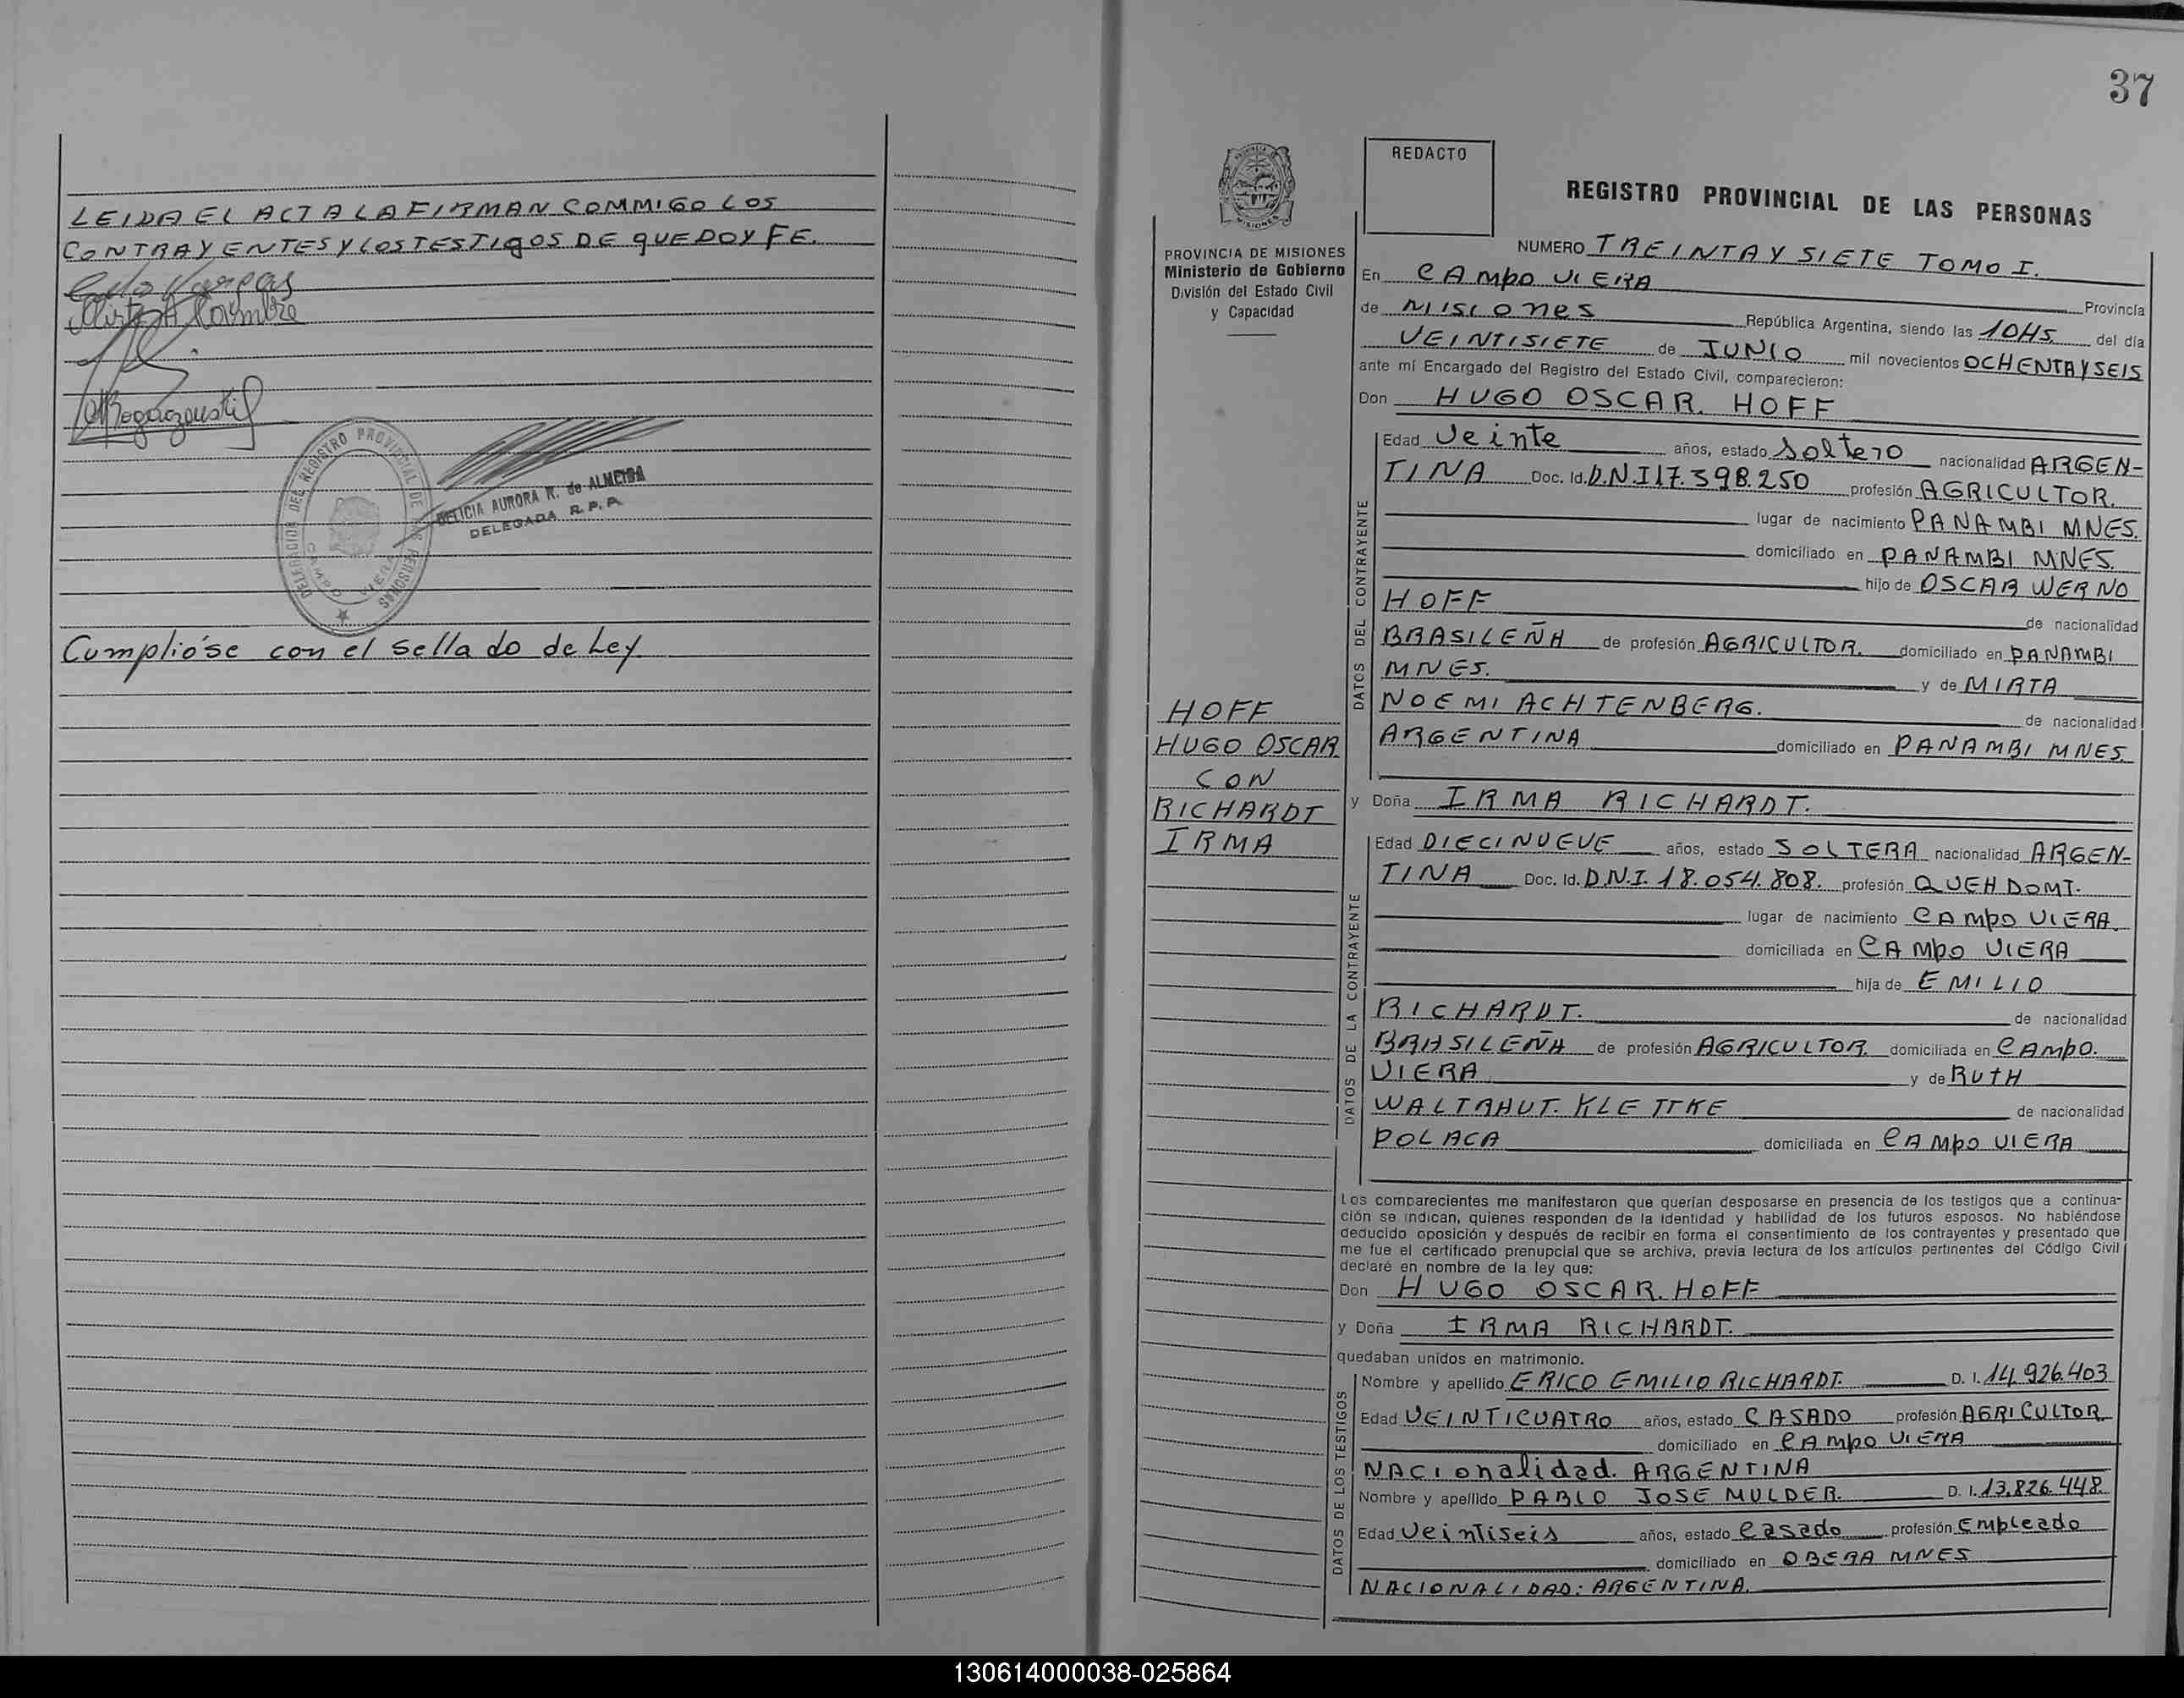 LEIDA EL ACTA LA FIRMAN COMMIGO LOS
CONTRAYENTES Y LOS TESTIGOS DE QUE DOY FE.
DELEGACION DEL REGISTRO PROVINCIAL DE LAS PERSONAS
CAMPO VIERA
DELICIA AURORA R. de ALMEIDA
DELEGADA R.P.P.
Cumplióse con el sellado de Ley
37
REDACTO
REGISTRO PROVINCIAL DE LAS PERSONAS
PROVINCIA DE MISIONES
Ministerio de Gobierno
División del Estado Civil
y Capacidad
HOFF
HUGO OSCAR
CON
RICHARDT
IRMA
NUMERO TREINTA Y SIETE TOMO I.
En CAMPO VIERA Provincia
de MISIONES República Argentina, siendo las 10HS. del día
VEINTISIETE de JUNIO mil novecientos OCHENTA Y SEIS
ante mí Encargado del Registro del Estado Civil, comparecieron:
Don HUGO OSCAR. HOFF
DATOS DEL CONTRAYENTE
Edad Veinte años, estado Soltero nacionalidad ARGEN-
TINA Doc. Id. D.N.I 17.398.250 profesión AGRICULTOR.
lugar de nacimiento PANAMBI MNES.
domiciliado en PANAMBI MNES.
hijo de OSCAR WERNO
HOFF de nacionalidad
BRASILEÑA de profesión AGRICULTOR. domiciliado en PANAMBI
MNES. y de MIRTA
NOEMI ACHTENBERG. de nacionalidad
ARGENTINA domiciliado en PANAMBI MNES.
y Doña IRMA RICHARDT.
DATOS DE LA CONTRAYENTE
Edad DIECINUEVE años, estado SOLTERA nacionalidad ARGEN-
TINA Doc. Id. D.N.I. 18.054.808. profesión QUEH DOMT.
lugar de nacimiento CAMPO VIERA.
domiciliada en CAMPO VIERA
hija de EMILIO
RICHARDT. de nacionalidad
BRASILEÑA de profesión AGRICULTOR. domiciliada en CAMPO.
VIERA y de RUTH
WALTRAUT. KLETTKE de nacionalidad
POLACA domiciliada en CAMPO VIERA
Los comparecientes me manifestaron que querían desposarse en presencia de los testigos que a continua-
ción se indican, quienes responden de la identidad y habilidad de los futuros esposos. No habiéndose
deducido oposición y después de recibir en forma el consentimiento de los contrayentes y presentado que
me fue el certificado prenupcial que se archiva, previa lectura de los artículos pertinentes del Código Civil
declaré en nombre de la ley que:
Don HUGO OSCAR. HOFF
y Doña IRMA RICHARDT.
quedaban unidos en matrimonio.
DATOS DE LOS TESTIGOS
Nombre y apellido ERICO EMILIO RICHARDT. D. I. 14.926.403
Edad VEINTICUATRO años, estado CASADO profesión AGRICULTOR
domiciliado en CAMPO VIERA
NACIONALIDAD. ARGENTINA
Nombre y apellido PABLO JOSE MULDER. D. I. 13.826.448.
Edad Veintiseis años, estado Casado profesión Empleado
domiciliado en OBERA MNES
NACIONALIDAD: ARGENTINA.
130614000038-025864